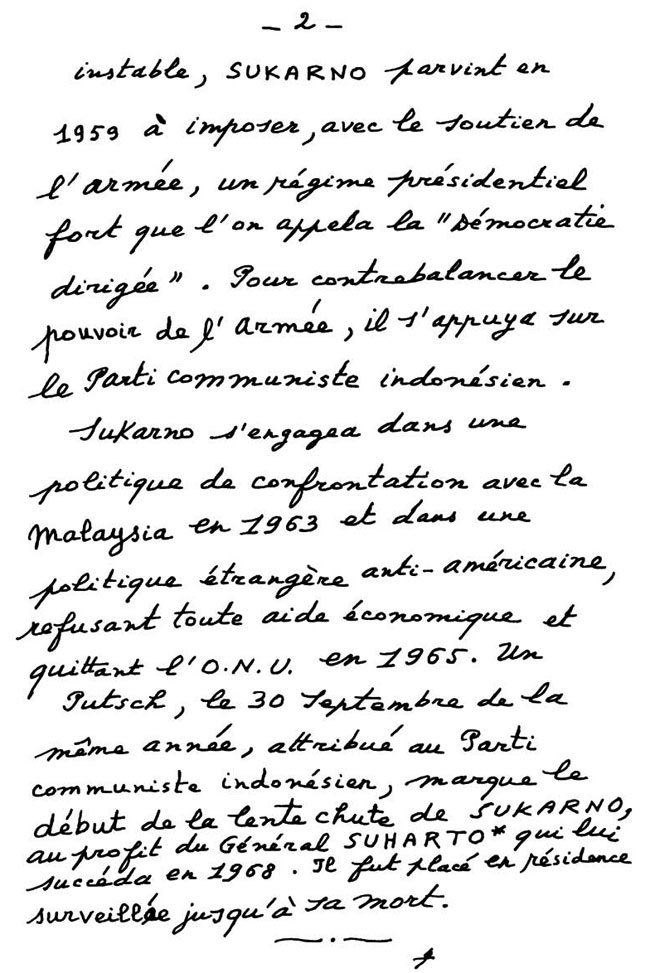 - 2 -
instable, SUKARNO parvint en
1959 à imposer, avec le soutien de
l'armée, un régime présidentiel
fort que l'on appela la "Démocratie
dirigée". Pour contrebalancer le
pouvoir de l'Armée, il s'appuya sur
le Parti communiste indonésien.
Sukarno s'engagea dans une
politique de confrontation avec la
Malaysia en 1963 et dans une
politique étrangère anti-américaine,
refusant toute aide économique et
quittant l'O.N.U. en 1965. Un
Putsch, le 30 Septembre de la
même année, attribué au Parti
communiste indonésien, marque le
début de la lente chute de SUKARNO,
au profit du Général SUHARTO* qui lui
succéda en 1968. Il fut placé en résidence
surveillée jusqu'à sa mort.